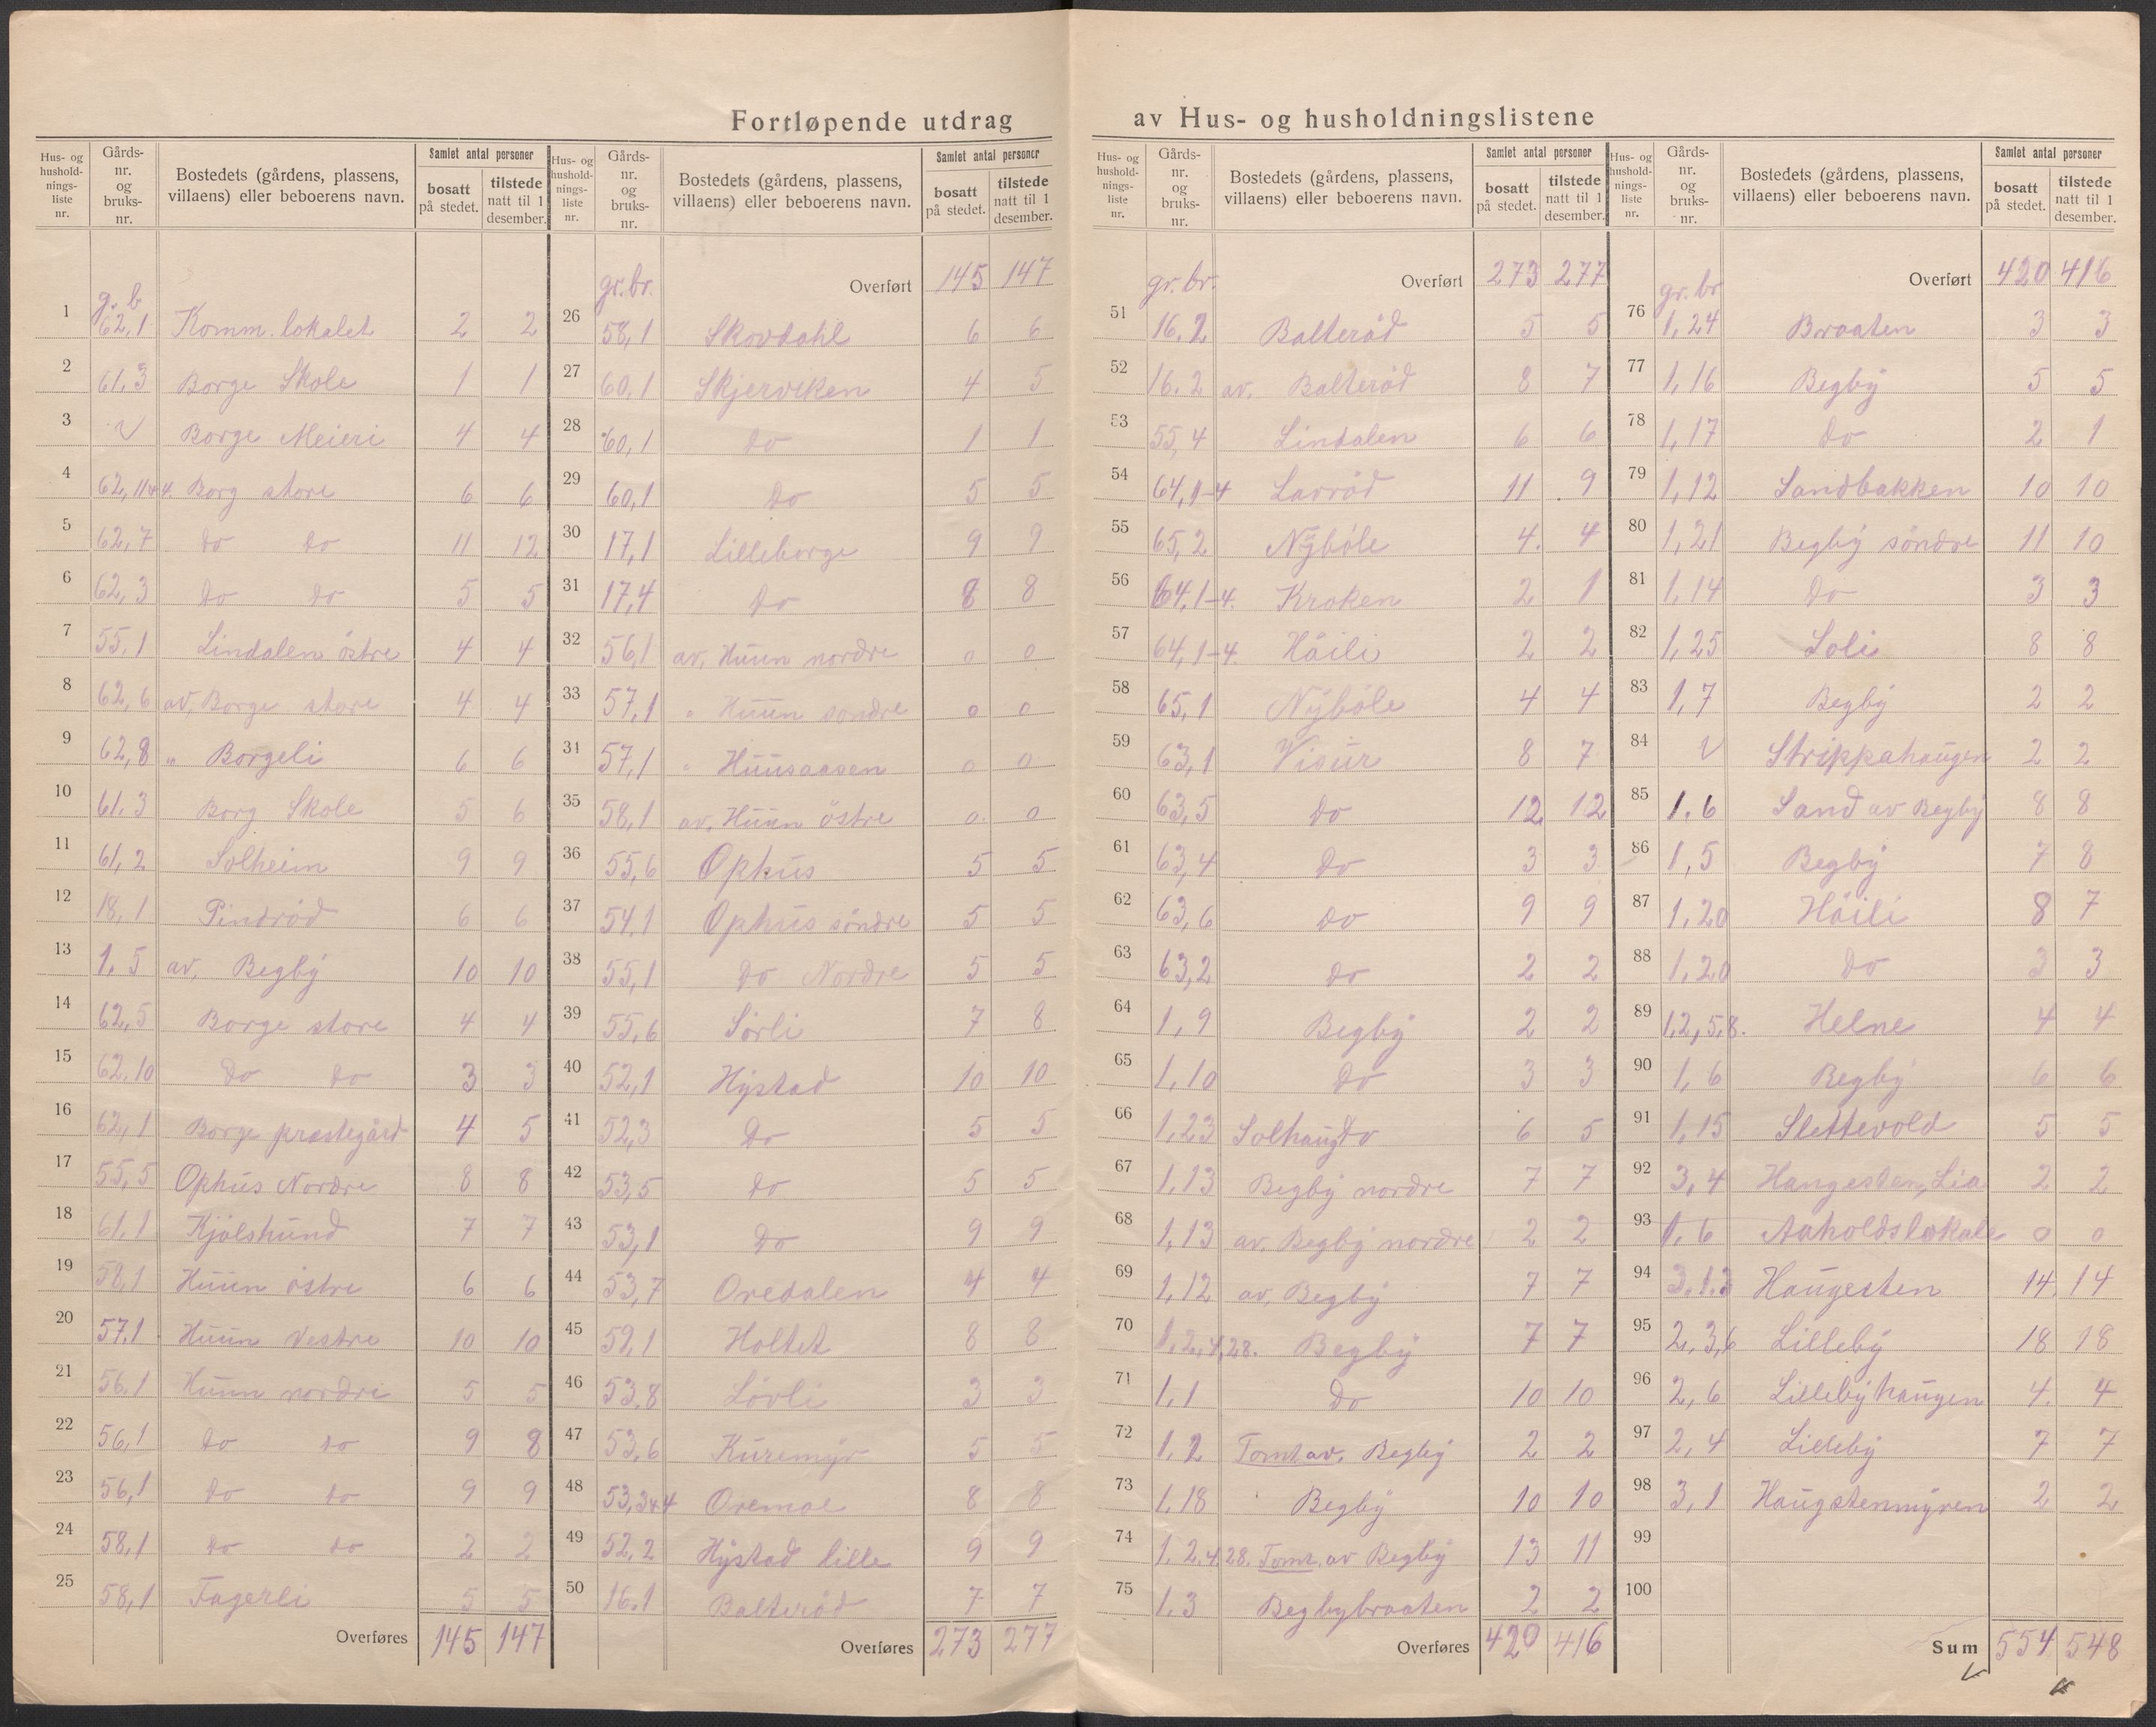 Fortløpende utdrag av Hus- og husholdningslistene
Hus- og husholdnings-liste nr. | Gårds-nr. og bruks-nr. | Bostedets (gårdens, plassens, villaens) eller beboerens navn. | Samlet antal personer | bosatt på stedet. | tilstede natt til 1 desember.
g. b
1 62,1 Komm. lokalet 2 2
2 61,3 Borge Skole 1 1
3 Borge Meieri 4 4
4 62,11+4. Borg store 6 6
5 62,7 do do 11 12
6 62,3 do do 5 5
7 55,1 Lindalen östre 4 4
8 62,6 av, Borge store 4 4
9 62,8 " Borgeli 6 6
10 61.3 Borg Skole 5 6
11 61,2 Solheim 9 9
12 18,1 Pindröd 6 6
13 1.5 av, Begby 10 10
14 62,5 Borge store 4 4
15 62.10 do do 3 3
16 62,1 Borge prestegård 4 5
17 55,5 Ophus Nordre 8 8
18 61,1 Kjölshund 7 7
19 58,1 Huun östre 6 6
20 57.1 Huun Vestre 10 10
21 56.1 Huun nordre 5 5
22 56,1 do do 9 8
23 56,1 do do 9 9
24 58,1 do do 2 2
25 58,1 Fagerli 5 5
Overføres 145 147
Hus- og husholdnings-liste nr. | Gårds-nr. og bruks-nr. | Bostedets (gårdens, plassens, villaens) eller beboerens navn. | Samlet antal personer | bosatt på stedet. | tilstede natt til 1 desember.
gr. br. Overført 145 147
26 58,1 Skovdahl 6 6
27 60,1 Skjerviken 4 5
28 60,1 do 1 1
29 60,1 do 5 5
30 17,1 Lilleborge 9 9
31 17,4 do 8 8
32 56,1 av, Huun nordre 0 0
33 57,1 " Huun sondre 0 0
31 57,1 " Huusaasen 0 0
35 58,1 av, Huun östre 0. 0
36 55,6 Ophus 5 5
37 54.1 Ophus söndre 5 5
38 55,1 do Nordre 5 5
39 55,6 Sörli 7 8
40 52,1 Hystad 10 10
41 52,3 Do 5 5
42 53,5 do 5 5
43 53,1 Do 9 9
44 53,7 Oredalen 4 4
45 59,1 Holtet 8 8
46 53.8 Lövli 3 3
47 53,6 Kuremyr 5 5
48 53,3+4 Oremoe 8 8
49 52,2 Hystad lille 9 9
50 16.1 Balteröd 7 7
Overføres 273 277
Hus- og husholdnings-liste nr. | Gårds-nr. og bruks-nr. | Bostedets (gårdens, plassens, villaens) eller beboerens navn. | Samlet antal personer | bosatt på stedet. | tilstede natt til 1 desember.
gr. br. Overført 273 277
51 16.2 Balteröd 5 5
52 16.2 av. Balteröd 8 7
53 55,4 Lindalen 6 6
54 64,1-4 Lavröd 11 9
55 65,2 Nyböle 4. 4
56 64,1-4. Kroken 2 1
57 64,1-4. Höili 2 2
58 65,1 Nyböle 4 4
59 63,1 Visur 8 7
60 63,5 do 12 12
61 63,4 do 3 3
62 63,6 do 9 9
63 63,2 do 2 2
64 1,9 Begby 2 2
65 1,10 do 3 3
66 1,23 Solhaug do 6 5
67 1,13 Begby nordre 7 7
68 1,13 av, Begby nordre 2 2
69 1,12 av, Begby 7 7
70 1,2,4,28. Begby 7 7
71 1,1 do 10 10
72 1,2 Tomt av. Begby 2 2
73 1,18 Begby 10 10
74 1.2.4.28. Tomt. av Begby 13 11
75 1.3 Begbybraaten 2 2
Overføres 420 416
Hus- og husholdnings-liste nr. | Gårds-nr. og bruks-nr. | Bostedets (gårdens, plassens, villaens) eller beboerens navn. | Samlet antal personer | bosatt på stedet. | tilstede natt til 1 desember.
gr. br Overført 420 416
76 1,24 Braaten 3 3
77 1,16 Begby 5 5
78 1,17 do 2 1
79 1,12 Sandbakken 10 10
80 1,21 Begby söndre 11 10
81 1,14 Do 3 3
82 1,25 Soli 8 8
83 1,7 Begby 2 2
84 Strippahaugen 2 2
85 1.6 Sand av Begby 8 8
86 1,5 Begby 7 8
87 1,20 Höili 8 7
88 1,20 do 3 3
89 1,2,5,8. Helne 4 4
90 1,6 Begby 6 6
91 1,15 Slettevold 5 5
92 3,4 Haugesten, Lia 2 2
93 1,6 Aaholdslokale 0 0
94 3.1.2 Haugesten 14 14
95 2,3,6 Lilleby 18 18
96 2,6 Lillebyhaugen 4. 4
97 2,4 Lilleby 7 7
98 3,1 Haugstenmyren 2 2
99
100
Sum 554 548